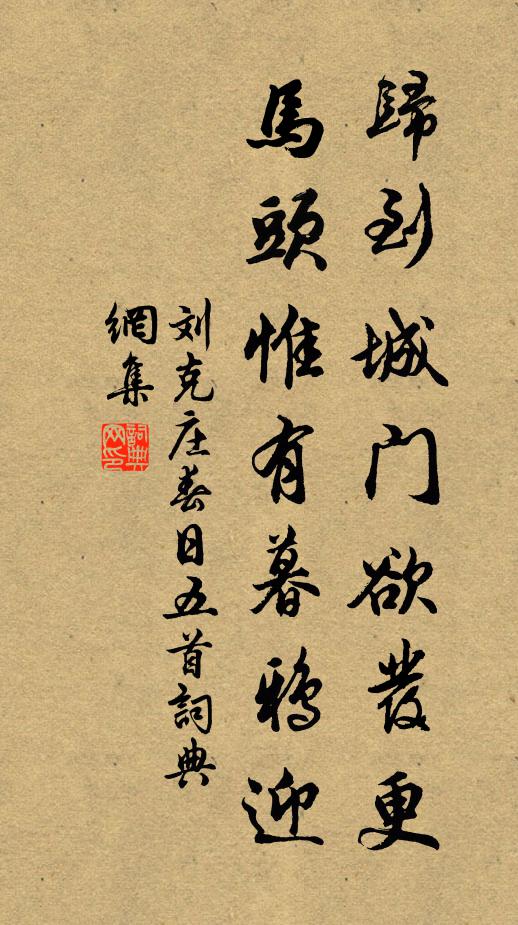 歸到城门欲發更
馬頭惟有暮鴉迎
刘克庄春日五首詞典
網集
詞典
网印